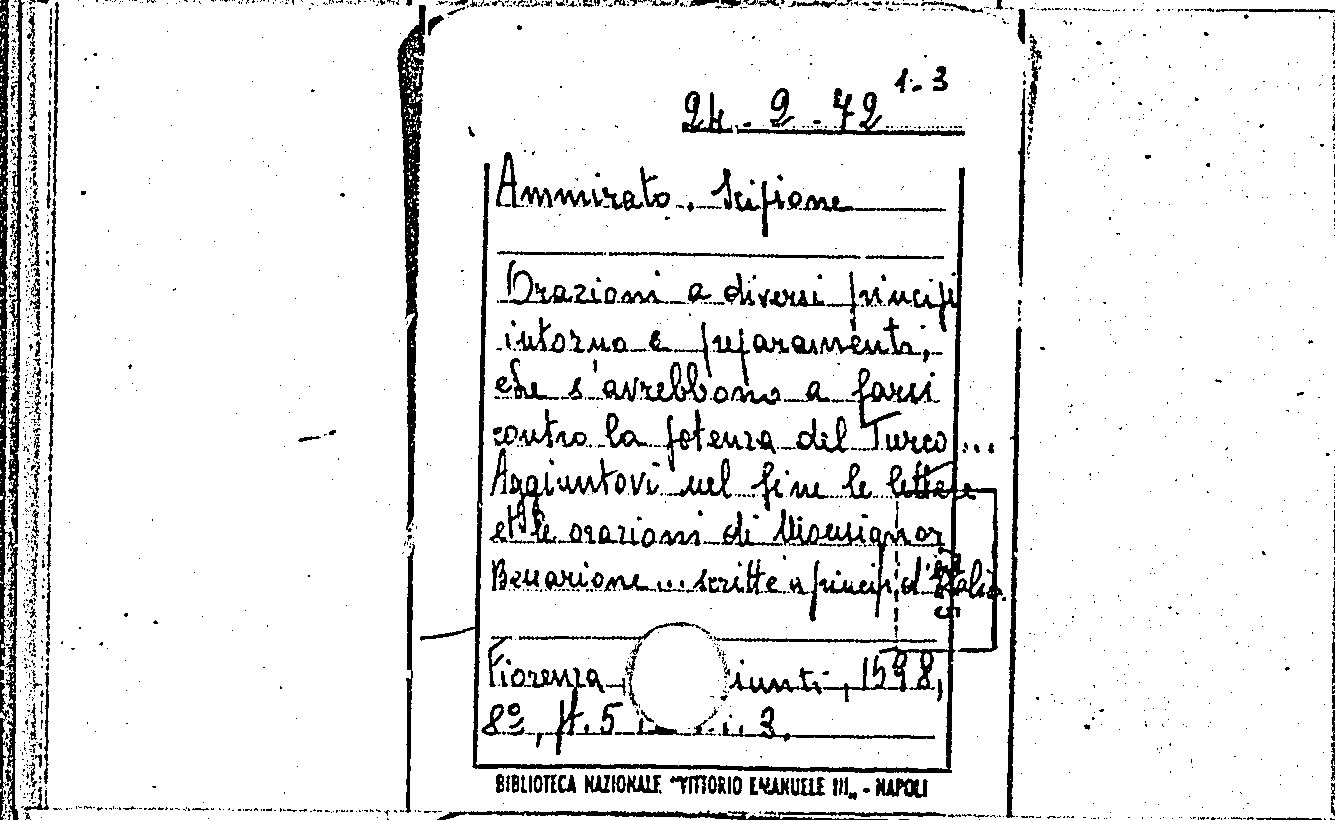 24 - 2 - 42 1-3
Ammirato, Scipione
Orazioni a diversi principi
intorno e preparamenti,
che s'avrebbono a farsi
contro la potenza del Turco ...
Aggiuntovi nel fine le lettere
et le orazioni di Monsignor
Bessarione ... scritte a principi d'Italia.
Fiorenza iunti, 1598,
8º, pt. 5 3.
BIBLIOTECA NAZIONALE "VITTORIO EMANUELE III„ - NAPOLI